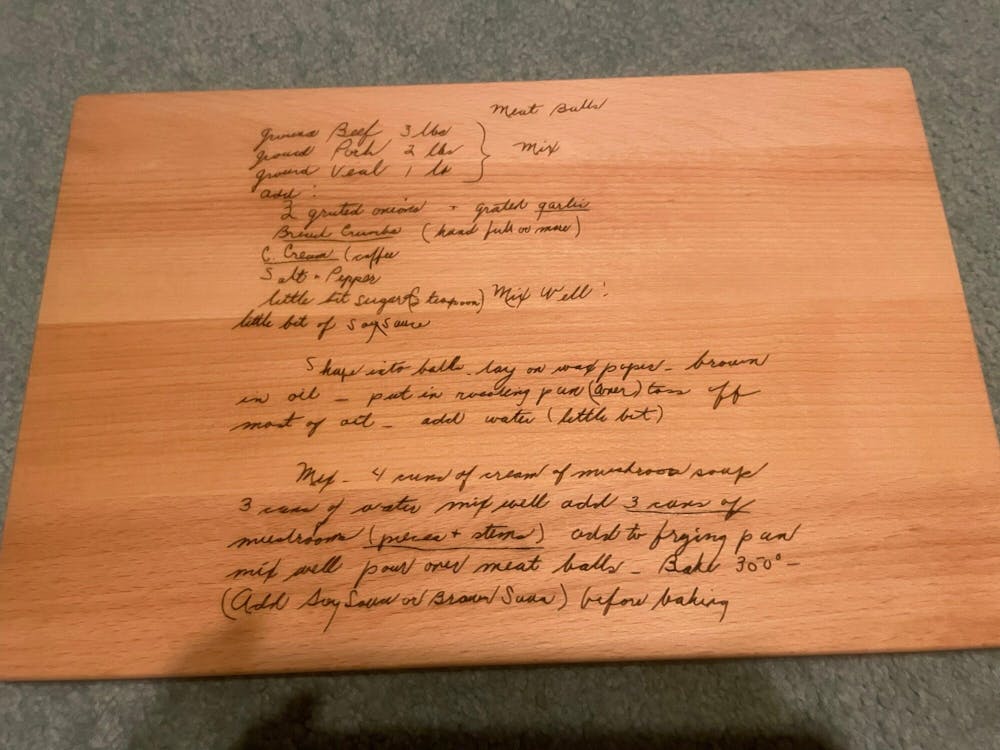 Meat Balls
ground Beef 3 lbs
ground Pork 2 lbs Mix
ground Veal 1 lb
add :
2 grated onions + grated garlic
Bread Crumbs (hand full or more)
C. Cream (coffee
Salt + Pepper
little bit sugar ( teaspoon) Mix Well !
little bit of Soy Sauce
Shape into balls - lay on wax paper - brown
in oil - put in roasting pan () toss off
most of oil - add water (little bit)
Mix - 4 cans of cream of mushroom soup
3 cans of water mix well add 3 cans of
mushrooms (pieces + stems) add to frying pan
mix well pour over meat balls - Bake 350° -
(Add Soy Sauce or Brown Sauce) before baking